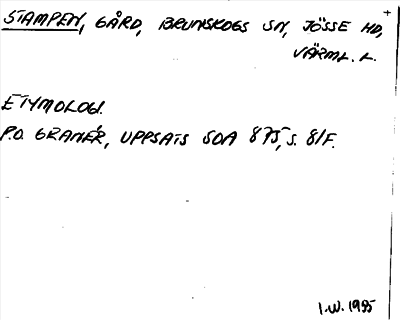 STAMPEN, GÅRD, BRUNSKOGS SN, JÖSSE HD,
VÄRML. L.
ETYMOLOGI.
P.O. GRANÉR, UPPSATS SOA 875, S. 81F.
I.W. 1995